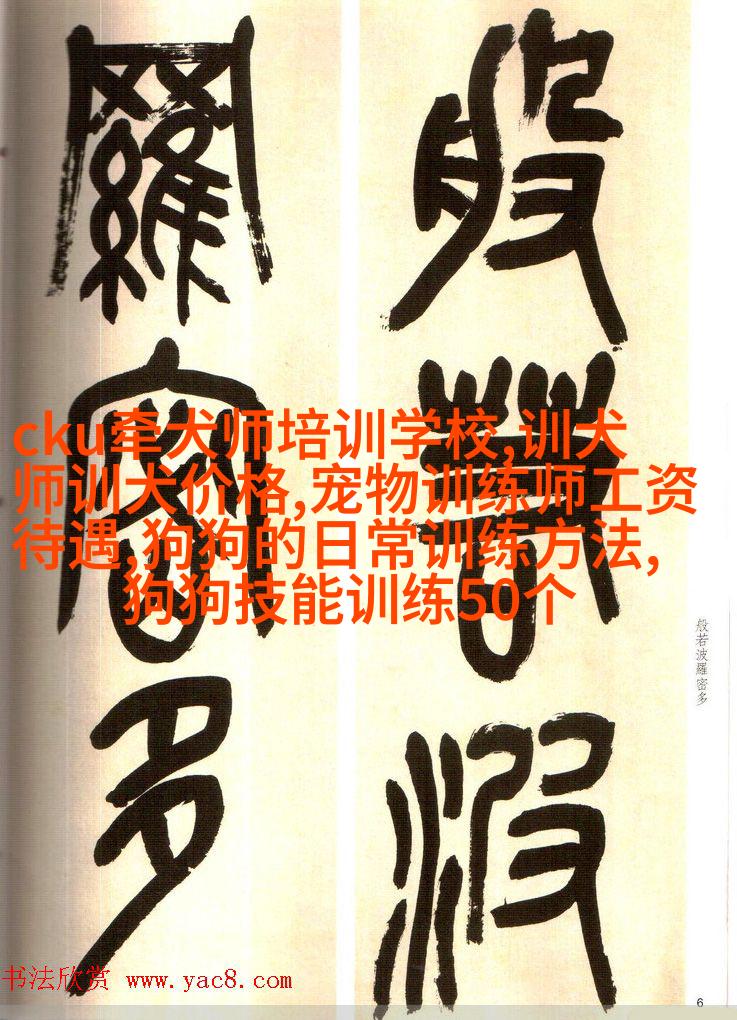 般若波
羅密多
cku牵犬师培训学校,训犬
师训犬价格,宠物训练师工资
待遇,狗狗的日常训练方法,
狗狗技能训练50个
般若波羅密多
书法欣赏 www.yac8.com
6